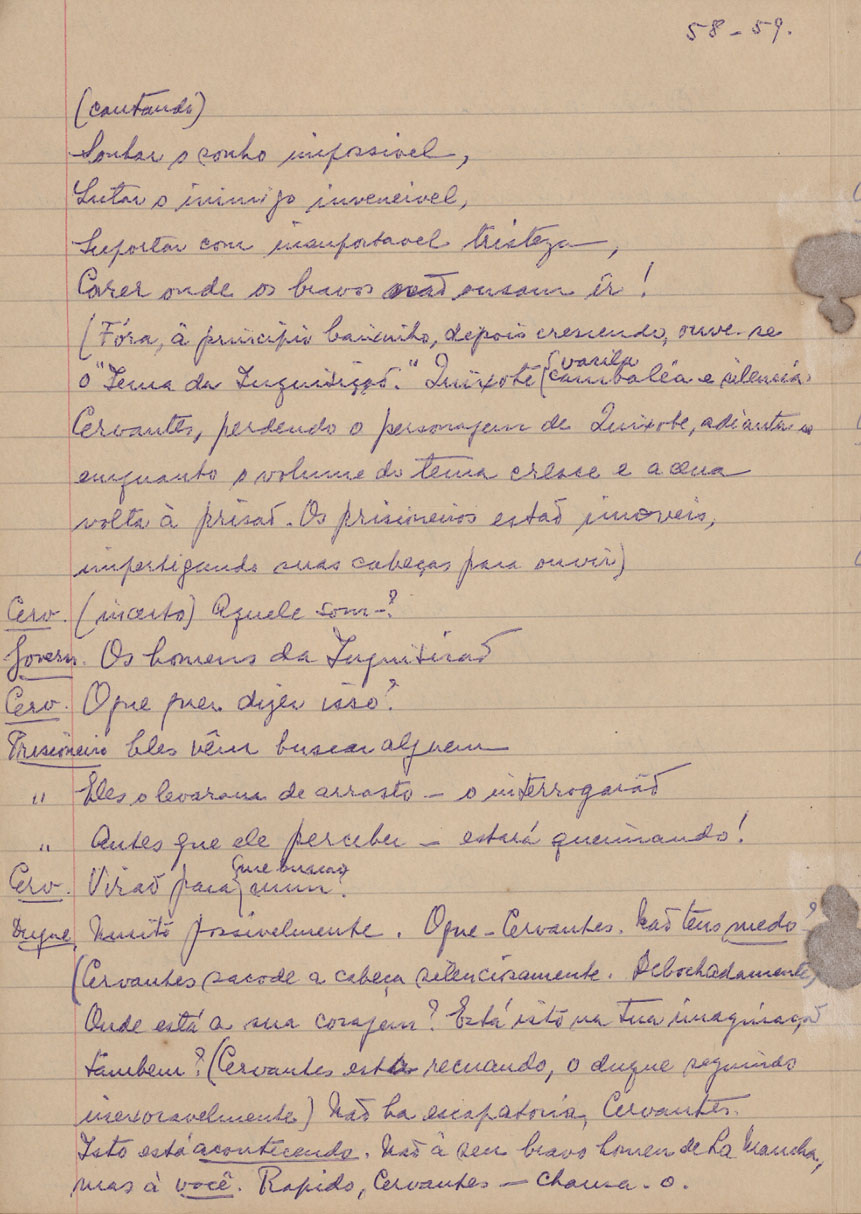 58-59.
(cantando)
Sonhar o sonho impossivel,
Lutar o inimigo invencivel,
Suportar com insuportavel tristeza,
Correr onde os bravos não ousam ir!
(Fóra, à principio baixinho, depois crescendo, ouve-se
o "Tema da Inquisição." Quixote (vacila cambaléa e silencia.
Cervantes, perdendo o personagem de Quixote, adianta-se
enquanto o volume do tema cresce e a cena
volta à prisão. Os prisioneiros estão imoveis,
impertigando suas cabeças para ouvir)
Cerv. (incerto) Aquele som-?
Govern. Os homens da Inquisição
Cerv. O que quer dizer isso?
Prisioneiro Eles vêm buscar alguem
" Eles o levaram de arrasto - o interrogarão
" Antes que ele perceber - estará queimando!
Cerv. Virão para me buscar
Duque Muito possivelmente. O que - Cervantes. Não tens medo?
(Cervantes sacode a cabeça silenciosamente. Debochadamente)
Onde está a sua coragem? Está isto na tua imaginação
tambem? (Cervantes está recuando, o duque seguindo
inexoravelmente) Não ha escapatoria, Cervantes.
Isto está acontecendo. Não à seu bravo homem de La Mancha,
mas à você. Rapido, Cervantes - chama-o.